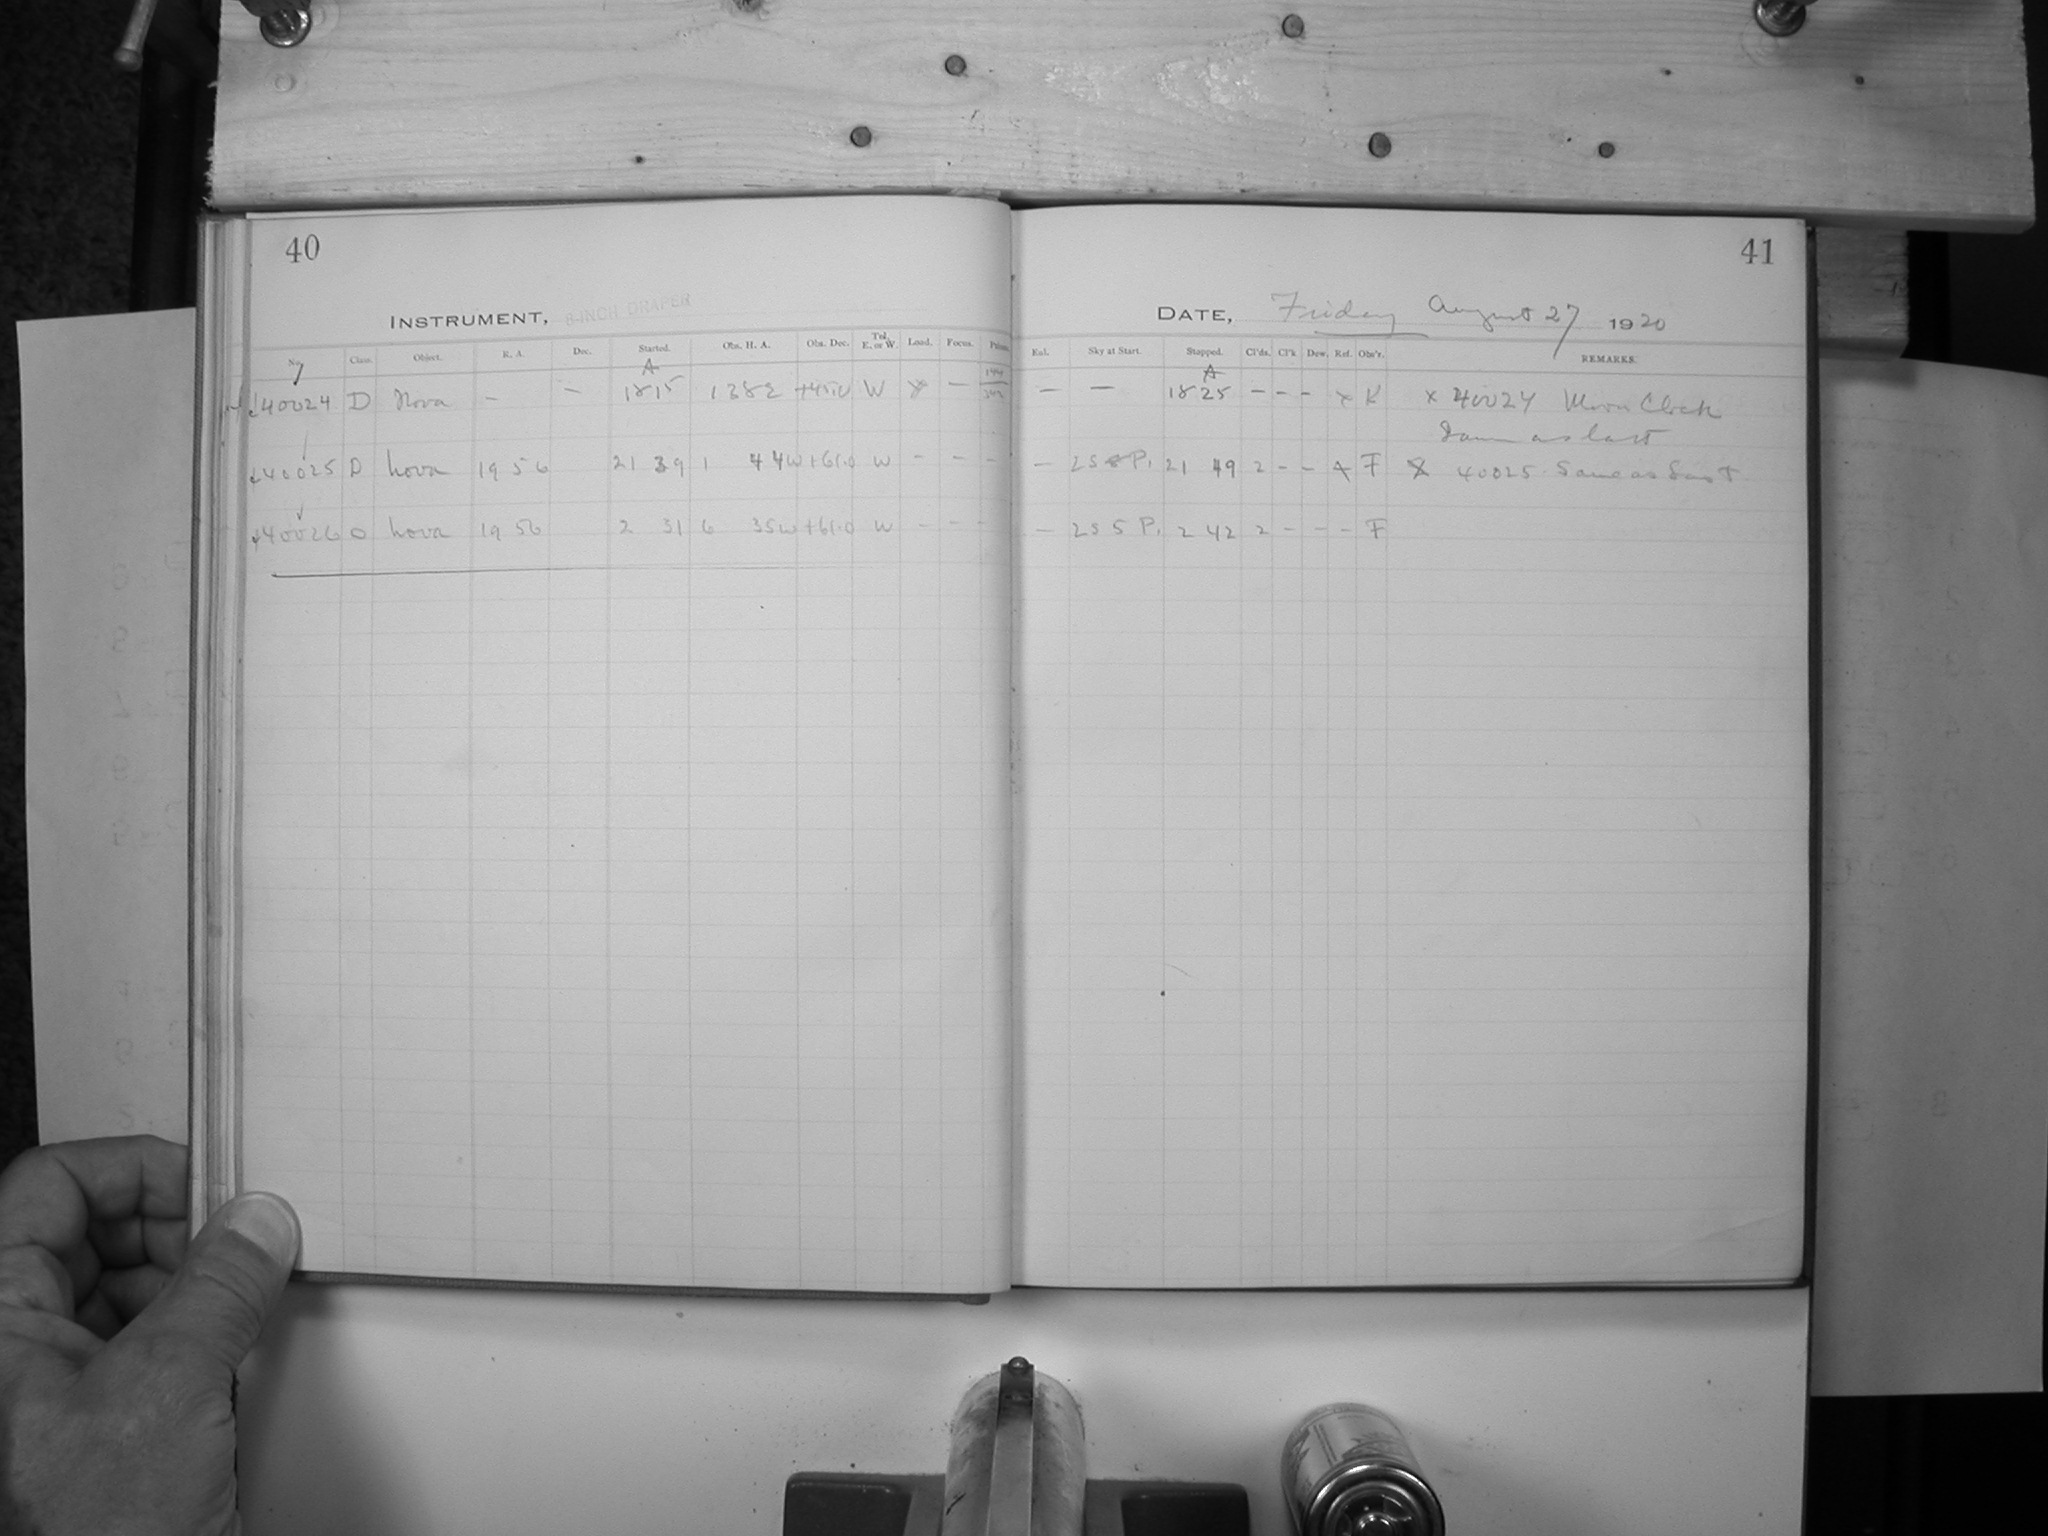 40
41
INSTRUMENT, 8-INCH DRAPER
DATE, Friday August 27 1920
No. Class. Object. R. A. Dec. Started. Obs. H. A. Obs. Dec. Tel. E. or W. Load. Focus. Prism.
Sky at Start. Stopped. Cl'ds. Cl'k Dew. Ref. Obs'r. REMARKS.
A A
40024 D Nova - - 18 15 1 382 W x - - - 18 25 - - - x K x 40024 Moon Clock
Same as last
40025 D Nova 19 56 21 39 1 44W +61.0 W - - - - 21 49 2 - - F 40025 Same as Last
40026 D Nova 19 56 2 31 6 35W +61.0 W - - - - 25 5 P. 2 42 2 - - - F